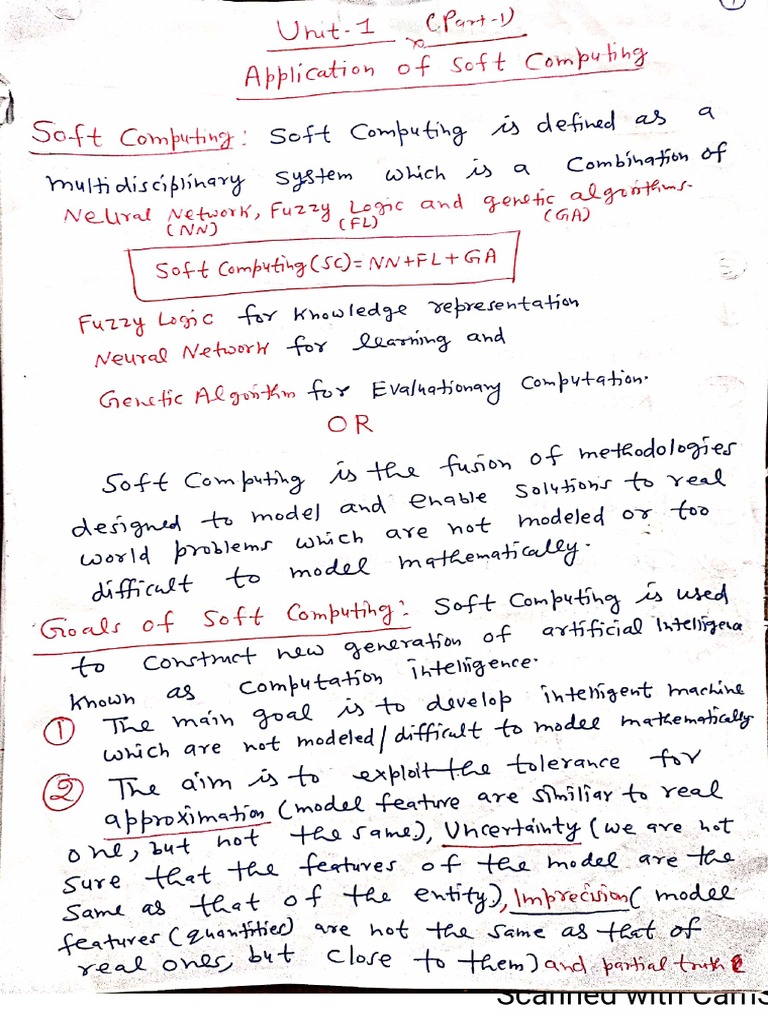 1
Unit-1 (Part-1)
Application of Soft Computing
Soft Computing: Soft Computing is defined as a
multidisciplinary system which is a Combination of
Neural Network, Fuzzy Logic and genetic algorithms.
(NN) (FL) (GA)
Soft Computing (SC) = NN+FL+GA
Fuzzy Logic for knowledge representation
Neural Network for learning and
Genetic Algorithm for Evaluationary Computation.
OR
Soft Computing is the fusion of methodologies
designed to model and enable solutions to real
world problems which are not modeled or too
difficult to model mathematically.
Goals of Soft Computing: Soft Computing is used
to Construct new generation of artificial Intelligence
known as Computation intelligence.
① The main goal is to develop intelligent machine
which are not modeled/difficult to model mathematically
② The aim is to exploit the tolerance for
approximation (model feature are similiar to real
one, but not the same), Uncertainty (we are not
sure that the features of the model are the
same as that of the entity), Imprecision (model
features (quantities) are not the same as that of
real ones, but close to them) and partial truth
Scanned with CamS